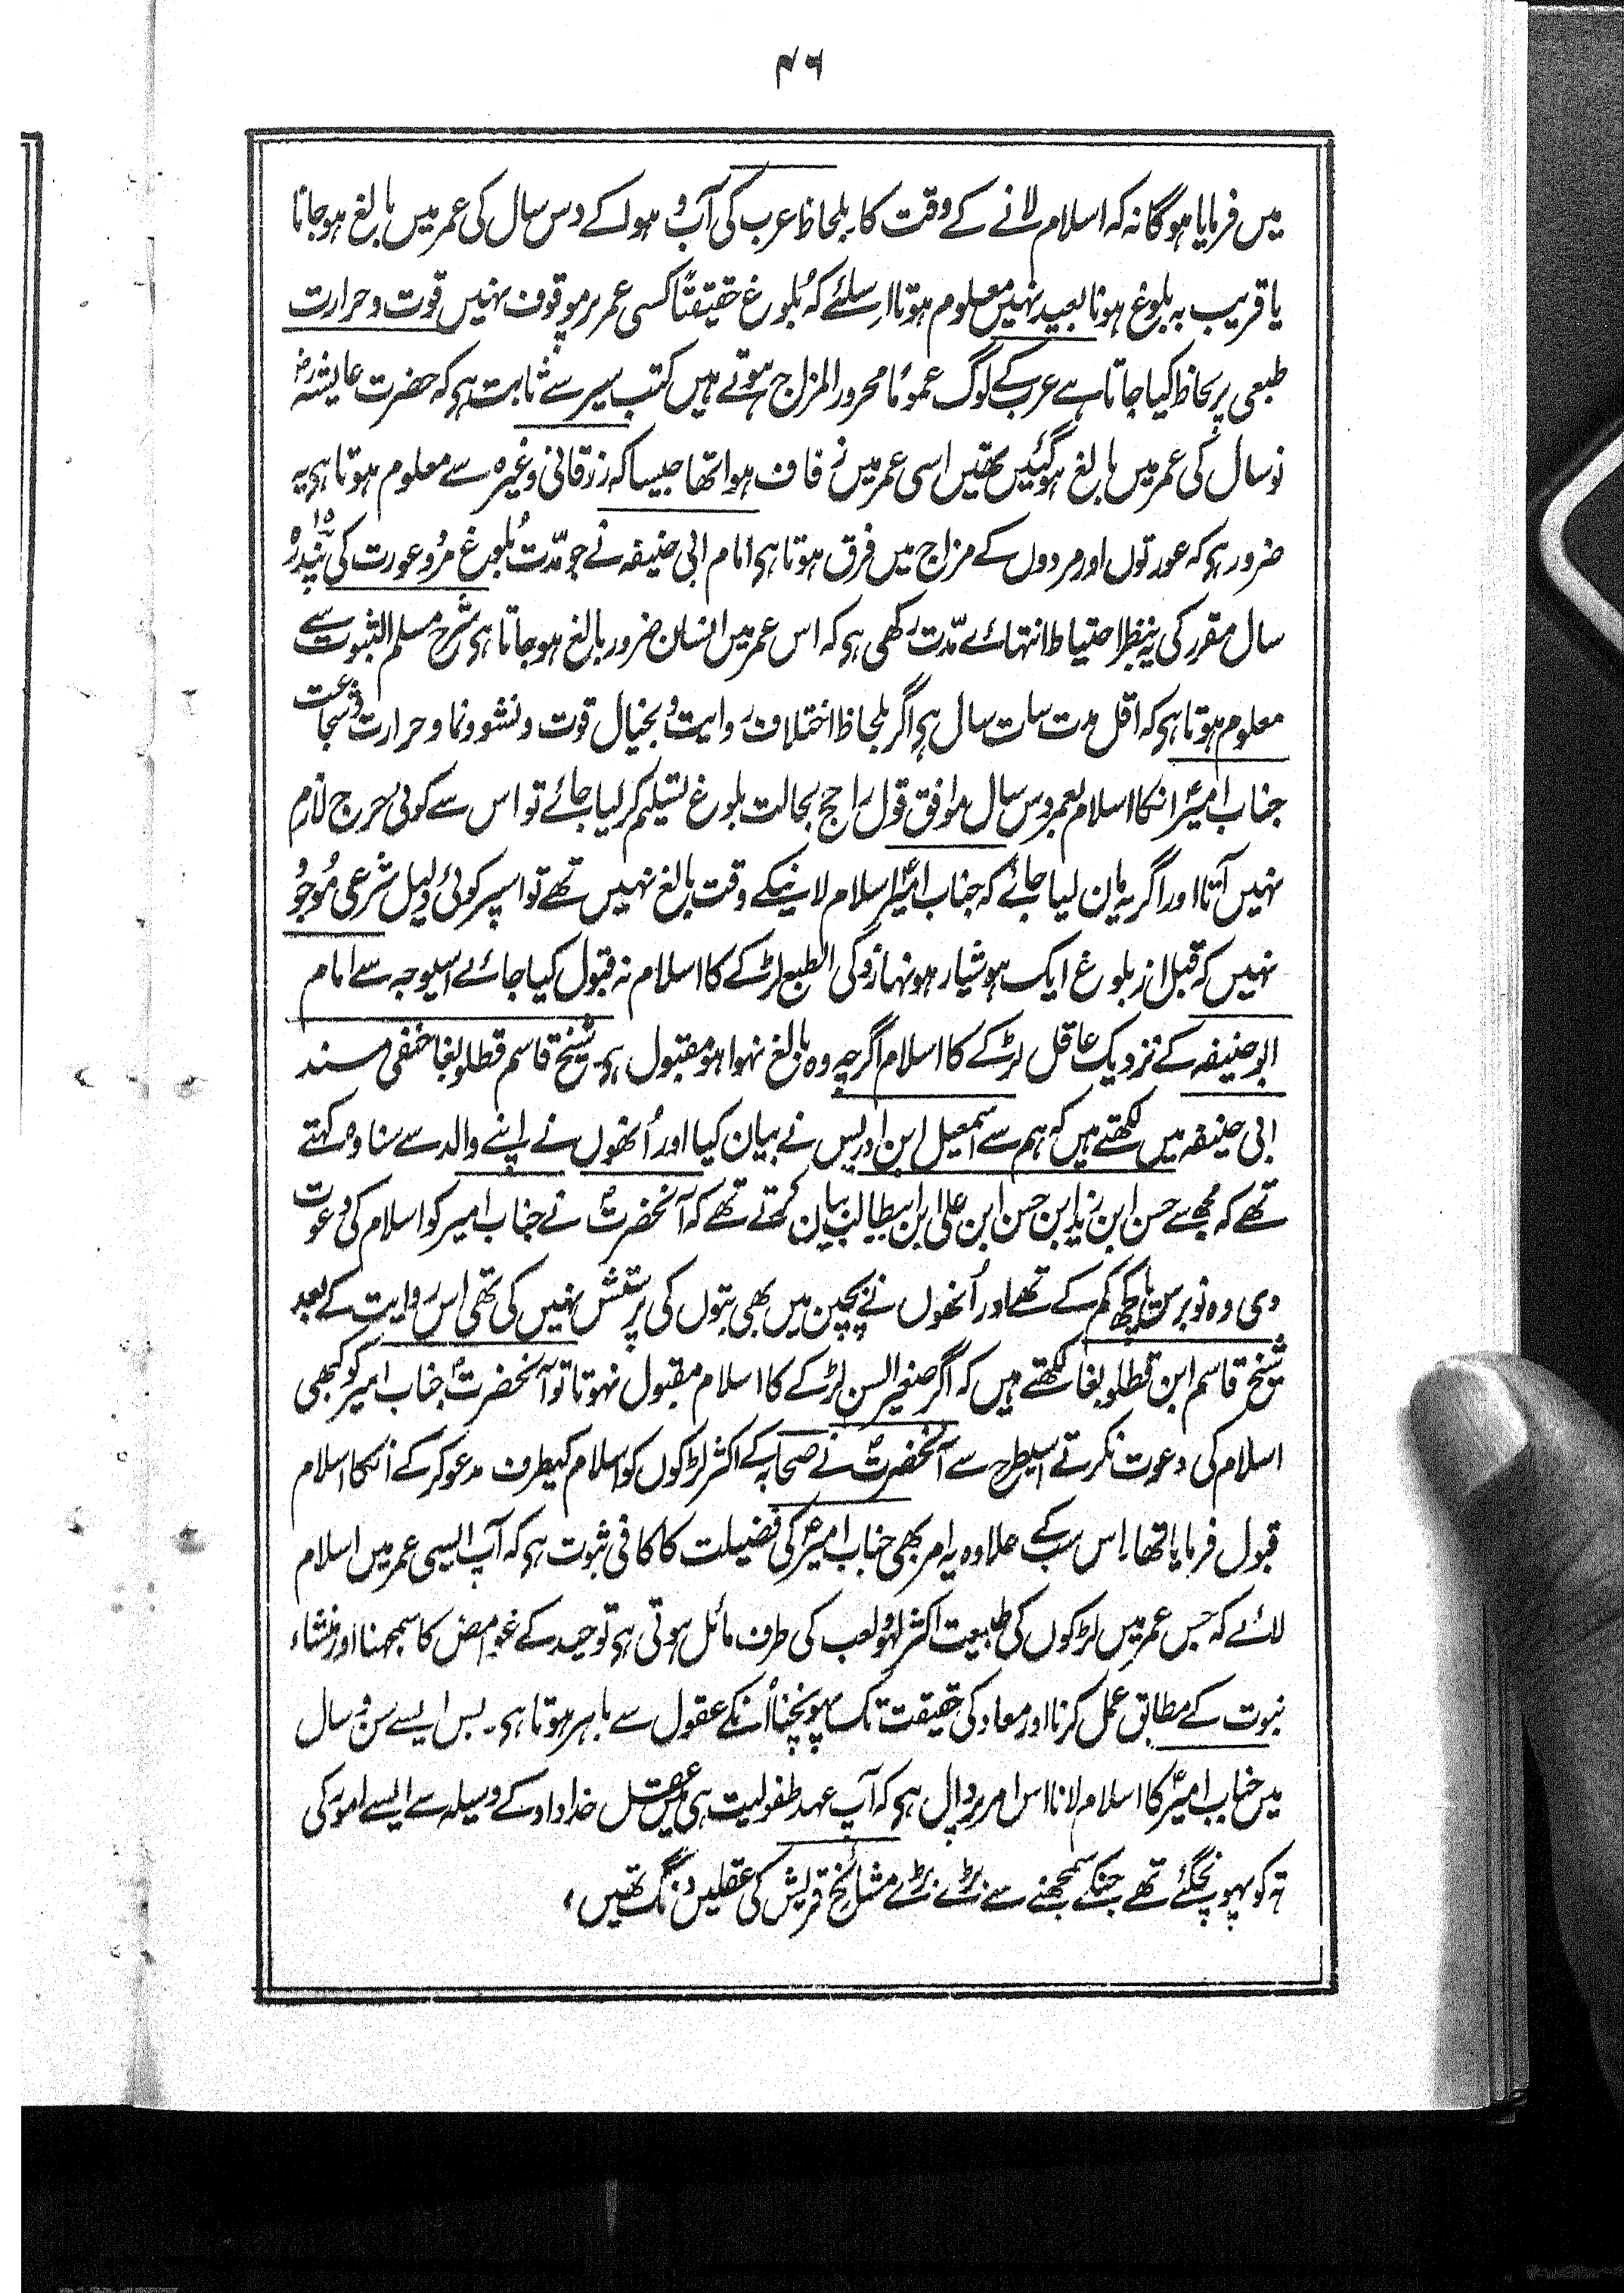 ۴۶
میں فرمایا ہوگا نہ کہ اسلام لانے کے وقت کا۔ بلحاظ عرب کی آب و ہوا کے دس سال کی عمر میں بالغ ہو جانا
یا قریب بہ بلوغ ہونا بعید نہیں معلوم ہوتا اسلئے کہ بُلوغ حقیقتًا کسی عمر پر موقوف نہیں قوت و حرارت
طبعی پر لحاظ کیا جاتا ہے عرب کے لوگ عمومًا محرور المزاج ہوتے ہیں کتب سیر سے ثابت ہی کہ حضرت عایشہ رض
نو سال کی عمر میں بالغ ہو گئیں تھیں اسی عمر میں زفاف ہوا تھا جیسا کہ زرقانی وغیرہ سے معلوم ہوتا ہی یہ
ضرور ہی کہ عورتوں اور مردوں کے مزاج میں فرق ہوتا ہی امام ابی حنیفہ نے جو مدّت بُلوغ مرد و عورت کی پندرہ ۱۵
سال مقرر کی یہ بنظر احتیاط انتہائے مدّت رکھی ہی کہ اس عمر میں انسان ضرور بالغ ہو جاتا ہی شرح مسلم الثبوت سے
معلوم ہوتا ہی کہ اقل مدت سات سال ہی اگر بلحاظ اختلاف روایت و بخیال قوت و نشو و نما و حرارت و شجاعت
جناب امیرؑ انکا اسلام بعمر دس سال موافق قول راجح بحالت بلوغ تسلیم کر لیا جائے تو اس سے کوئی حرج لازم
نہیں آتا اور اگر یہ مان لیا جائے کہ جناب امیرؑ اسلام لانیکے وقت بالغ نہیں تھے تو اسپر کوئی دلیل شرعی موجود
نہیں کہ قبل از بلوغ ایک ہوشیار ہونہار ذکی الطبع لڑکے کا اسلام نہ قبول کیا جائے اسیوجہ سے امام
ابو حنیفہ کے نزدیک عاقل لڑکے کا اسلام اگرچہ وہ بالغ نہوا ہو مقبول ہی۔ شیخ قاسم قطلوبغا حنفی مسند
ابی حنیفہ میں لکھتے ہیں کہ ہم سے اسمعیل ابن ادریس نے بیان کیا اور اُنھوں نے اپنے والد سے سنا وہ کہتے
تھے کہ مجھ سے حسن ابن زید ابن حسن ابن علی ابن ابیطالب بیان کرتے تھے کہ آنحضرتؐ نے جناب امیر کو اسلام کی دعوت
دی وہ نو برس یا کچھ کم کے تھے اور اُنھوں نے بچپن میں بھی بتوں کی پرستش نہیں کی تھی اس روایت کے بعد
شیخ قاسم ابن قطلوبغا لکھتے ہیں کہ اگر صغیر السن لڑکے کا اسلام مقبول نہوتا تو آنحضرتؐ جناب امیر کو کبھی
اسلام کی دعوت نکرتے اسیطرح سے آنحضرتؐ نے صحابہ کے اکثر لڑکوں کو اسلام کیطرف مدعو کر کے انکا اسلام
قبول فرمایا تھا۔ اس سب کے علاوہ یہ امر بھی جناب امیرؑ کی فضیلت کا کافی ثبوت ہی کہ آپ ایسی عمر میں اسلام
لائے کہ جس عمر میں لڑکوں کی طبیعت اکثر لہو و لعب کی طرف مائل ہوتی ہی توحید کے غوامض کا سمجھنا اور منشاء
نبوت کے مطابق عمل کرنا اور معاد کی حقیقت تک پہونچنا اُنکے عقول سے باہر ہوتا ہی۔ بس ایسے سن و سال
میں جناب امیرؑ کا اسلام لانا اس امر پر دال ہی کہ آپ عہد طفولیت ہی میں عقل خداداد کے وسیلہ سے ایسے امور کی
تہ کو پہونچگئے تھے جنکے سمجھنے سے بڑے بڑے مشائخ قریش کی عقلیں دنگ تھیں،